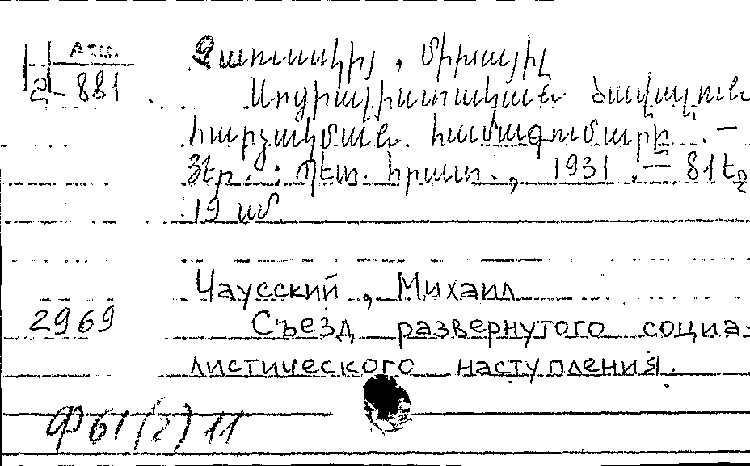 Ատտ.
Չ-881
Չաուսսկիյ, Միխայիլ
Սոցիալիստական ծավալուն
հարձակման համագումարը. —
Յեր.: Պետ. հրատ., 1931. — 81 եջ
19 սմ
Чаусский, Михаил
2969
Съезд развернутого социа-
листического наступления.
Ф61(2)11